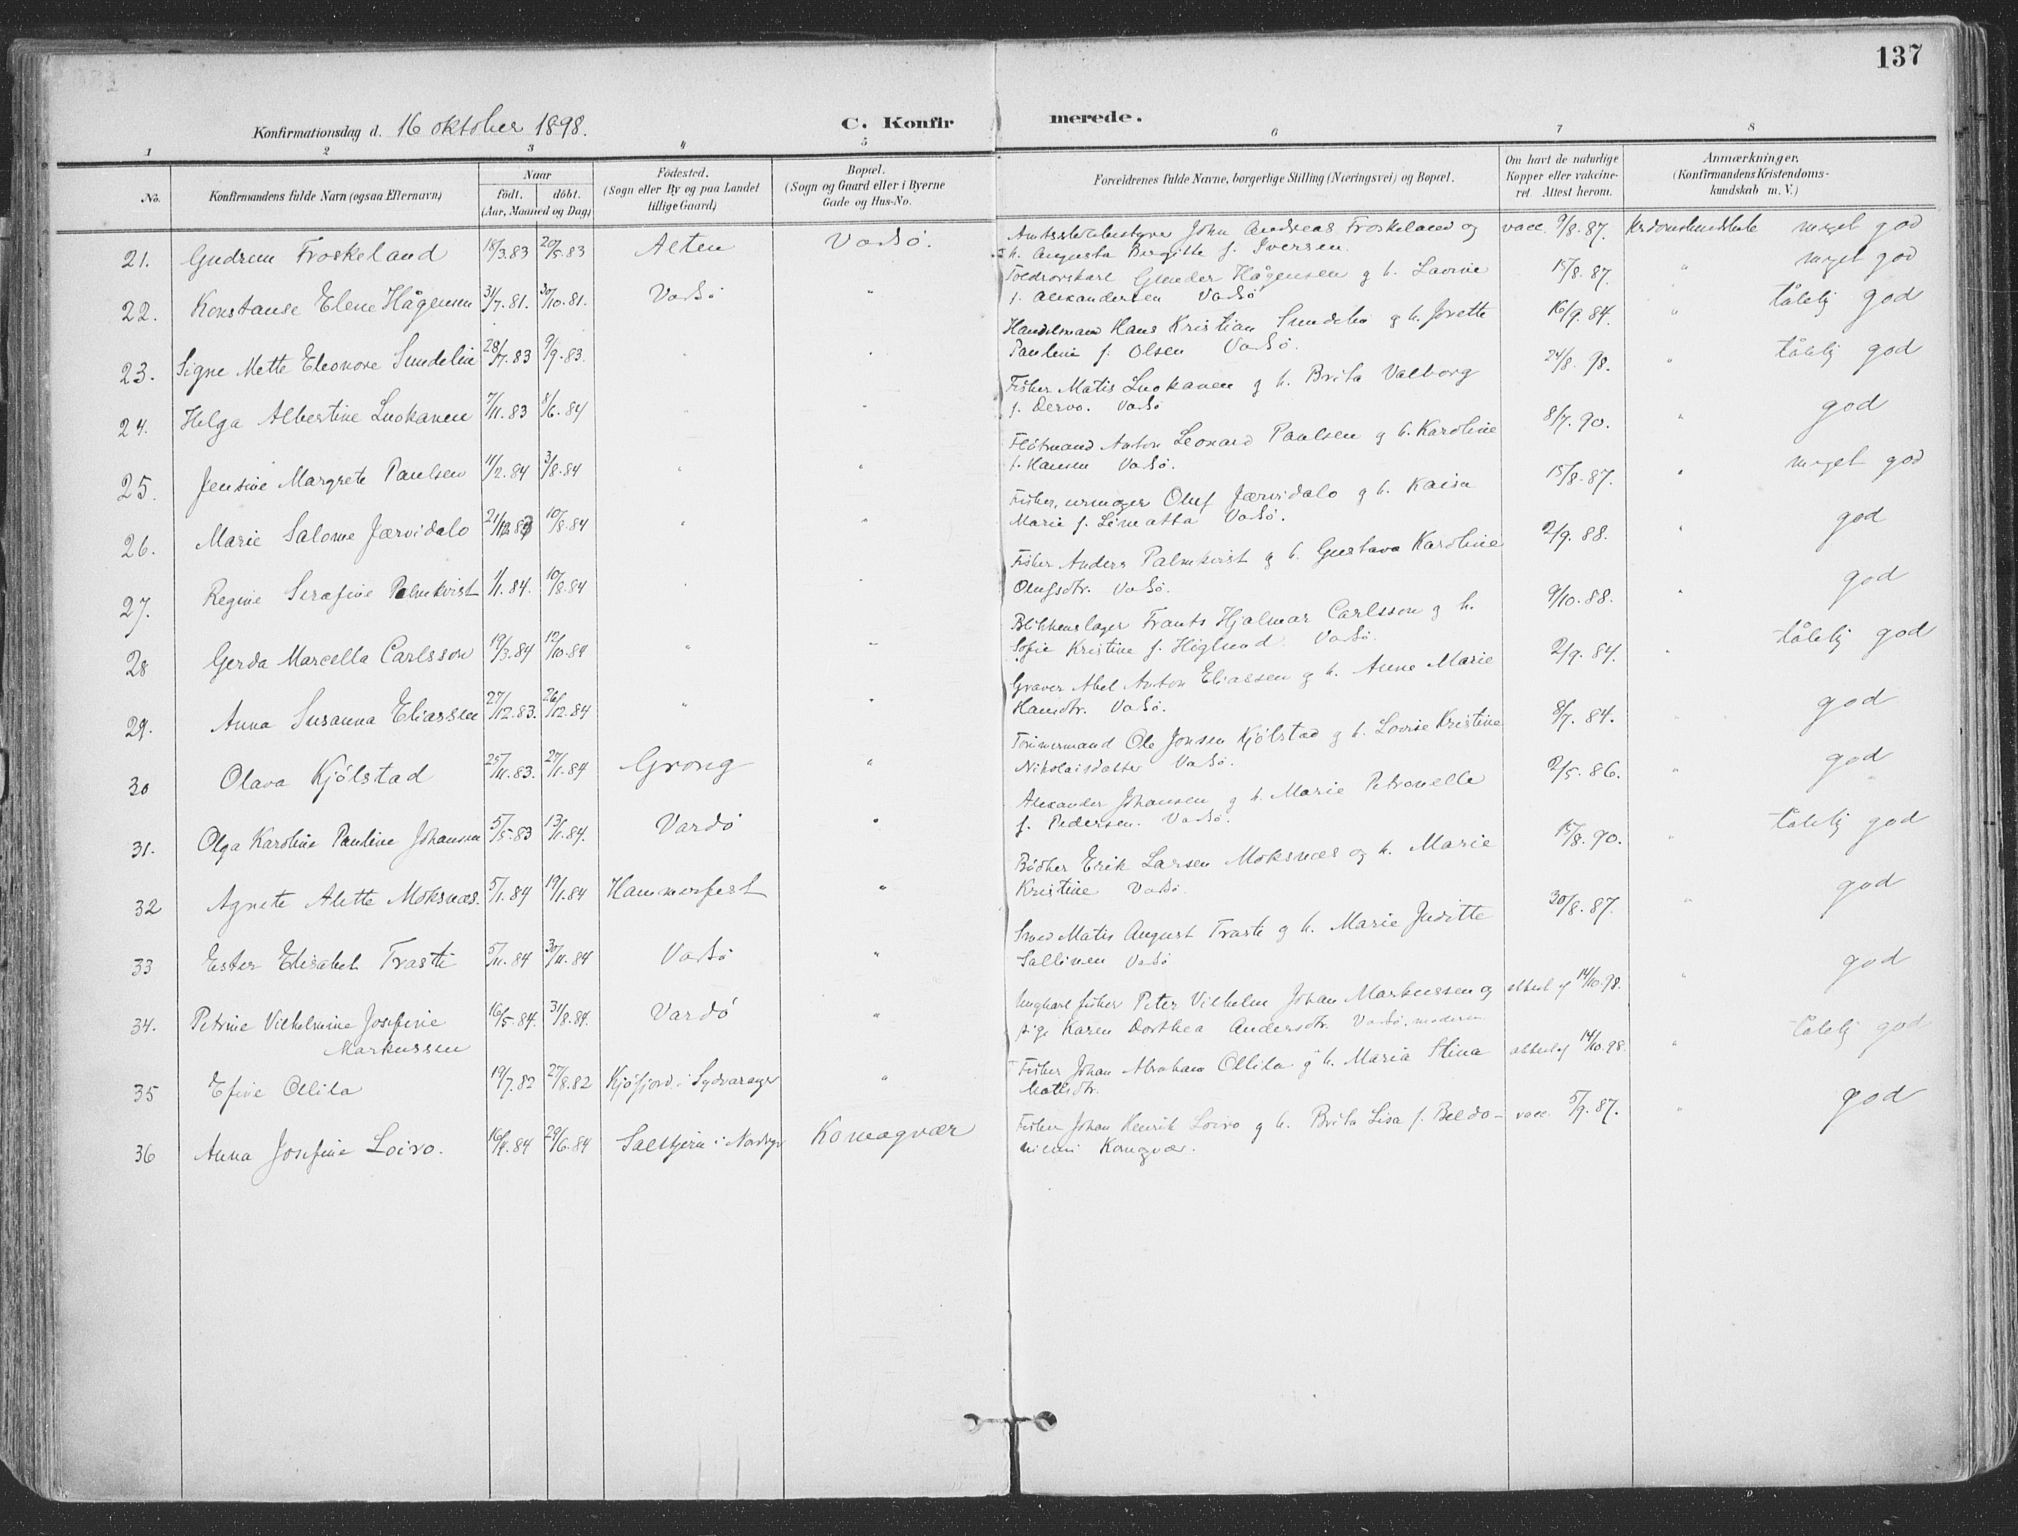 137
Konfirmationsdag d. 16 oktober 1898.
C. Konfirmerede.
1 2 3 4 5 6 7 8
No.
Konfirmandens fulde Navn (ogsaa Efternavn)
Naar
født. døbt.
(Aar, Maaned og Dag)
Fødested.
(Sogn eller By og paa Landet
tillige Gaard)
Bopæl.
(Sogn og Gaard eller i Byerne
Gade og Hus-No.
Forældrenes fulde Navne, borgerlige Stilling (Næringsvei) og Bopæl.
Om havt de naturlige
Kopper eller vakcine-
ret. Attest herom.
Anmærkninger.
(Konfirmandens Kristendoms-
kundskab m. V.)
21. Gudrun Froskeland 18/3.83 20/5.83 Alten Vadsø. Johan Andreas Froskeland og vacc. 9/8.87. meget god
h. Augusta Bergitte f. Iversen.
22. Konstanse Elene Hågensen 31/7.81. 30/10.81. Vadsø " Gunder Hågensen g h. Lovine 15/8.87. " meget god
f. Alexandersen Vadsø
23. Signe Mette Eleonore Sundelin 28/7.83 9/9.83. " " Handelsmand Hans Kristian Sundelin g h. Josette 16/9.84. " tålelig god
Pauline f. Olsen Vadsø.
24. Helga Albertine Luokanen 7/11.83 8/6.84 " " Fisker Matis Luokanen g h. Brita Valborg 24/8.98. " tålelig god
f. Dervo. Vadsø
25. Jensine Margrete Paulsen 11/2.84 3/8.84 " " Anton Leonard Paulsen g h. Karoline 8/7.90. " god
f. Hansen Vadsø.
26. Marie Salome Jærvidalo 21/12.83 10/8.84 " " Fisker, urmager Oluf Jærvidalo g h. Kaisa 15/8.87. " meget god
Marie f. Limatta Vadsø.
27. Regine Serafine Palmkvist 1/1.84. 10/8.84 " " Fisker Anders Palmkvist g h. Gustava Karoline 2/9.88. " god
Olufsdtr. Vadsø.
28 Gerda Marcella Carlsson 19/3.84 12/10.84 " " Blikkenslager Frants Hjalmar Carlsson g h. 9/10.88. " god
Sofie Kristine f. Höglund. Vadsø.
29. Anna Susanna Eliassen 27/12.83. 26/12.84 " " Graver Abel Anton Eliassen g h. Anne Marie 2/9.84. " tålelig god
Hansdtr. Vadsø.
30 Olava Kjölstad 25/11.83. 27/1.84 Grong " Tømmermand Ole Jonsen Kjölstad g h. Lovise Kristine 8/7.84. " god
Nikolaisdatter Vadsø.
31. Olga Karoline Pauline Johansen 5/5.83 13/1.84. Vardø " Alexander Johansen g h. Marie Petronelle 2/5.86. " god
f. Pedersen. Vadsø.
32 Agnete Alette Moksnæs. 5/1.84 19/1.84 Hammerfest " Bødker Erik Larsen Moksnæs og h. Marie 15/8.90. " tålelig god
Kristine Vadsø.
33 Ester Elisabet Trasti 5/11.84 30/11.84 Vadsø " Smed Matis August Trasti g h. Marie Juditte 30/8.87. " god
Sallinen Vadsø
34. Petrine Vilhelmine Josefine 16/5.84. 31/8.84. Vardø " Ungkarl fisker Peter Vilhelm Johan Markussen og 14/10.98. " god
Markussen pige Karen Dorthea Andersdtr. Vadsø,
35 Efine Ollila 19/7.82 27/8.82 Kjøfjord i Sydvaranger " Fisker Johan Abraham Ollila g h. Maria Stina 14/10.98. " tålelig god
Matisdtr.
36 Anna Josefine Loivo. 16/4.84 29/6.84 Komagvær Fisker Johan Henrik Loivo g h. Brita Lisa f. Beldo- vacc. 5/9.87. " god
niemi Komagvær.